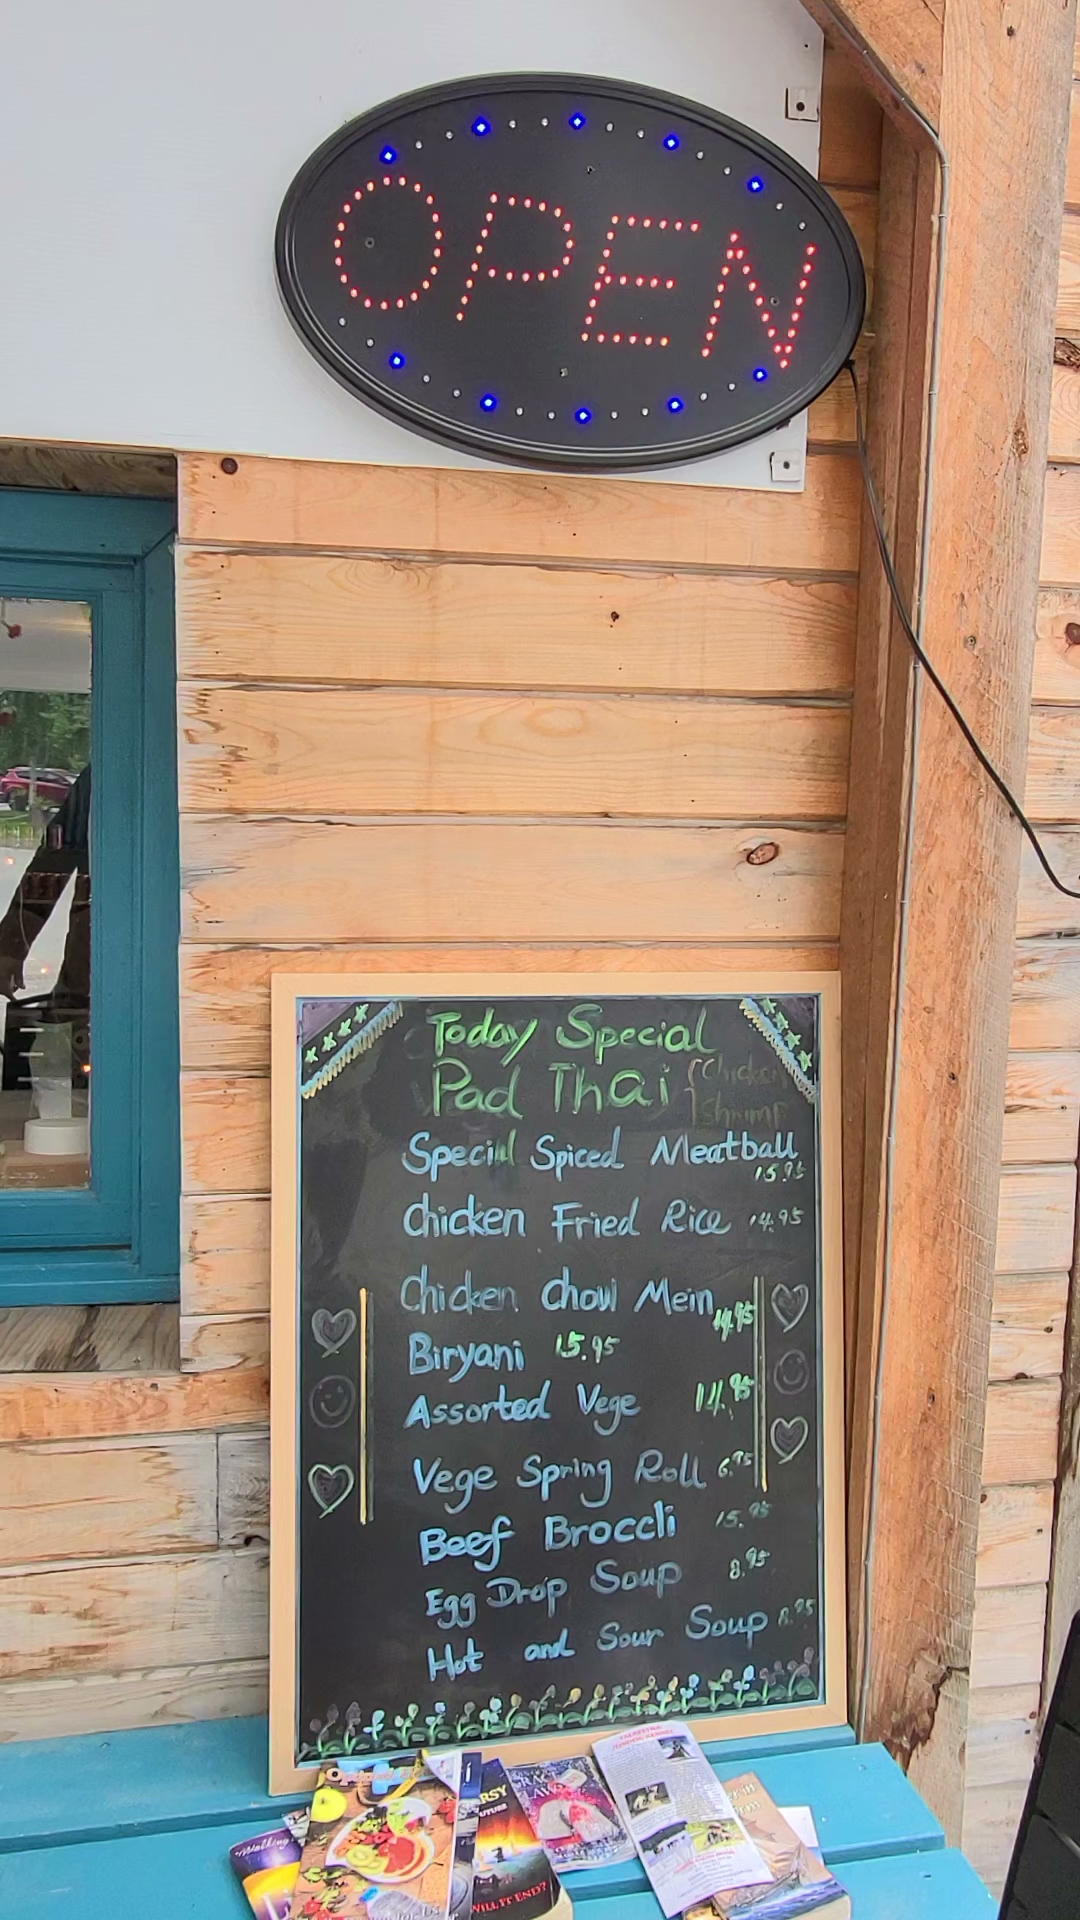 OPEN
Today Special
Pad Thai { Chicken
shrimp
Special Spiced Meatball
15.95
Chicken Fried Rice 14.95
Chicken Chow Mein
14.95
Biryani 15.95
Assorted Vege 14.95
Vege Spring Roll 6.95
Beef Broccli 15.95
Egg Drop Soup 8.95
Hot and Sour Soup 8.95
Walking
WILL IT END?